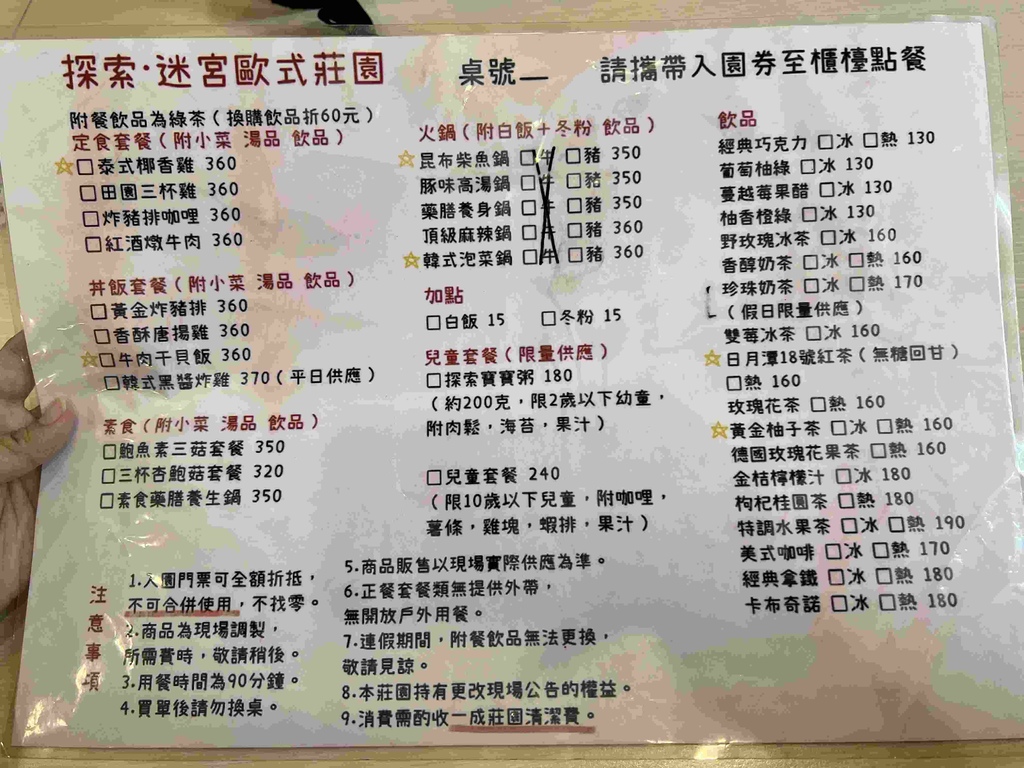 探索·迷宮歐式莊園
桌號__
請攜帶入園券至櫃檯點餐
附餐飲品為綠茶（換購飲品折60元）
定食套餐（附小菜 湯品 飲品）
☆□泰式椰香雞 360
□田園三杯雞 360
□炸豬排咖哩 360
□紅酒燉牛肉 360
丼飯套餐（附小菜 湯品 飲品）
□黃金炸豬排 360
□香酥唐揚雞 360
☆□牛肉干貝飯 360
□韓式黑醬炸雞 370（平日供應）
素食（附小菜 湯品 飲品）
□鮑魚素三菇套餐 350
□三杯杏鮑菇套餐 320
□素食藥膳養生鍋 350
火鍋（附白飯＋冬粉 飲品）
☆昆布柴魚鍋 □牛 □豬 350
豚味高湯鍋 □牛 □豬 350
藥膳養身鍋 □牛 □豬 350
頂級麻辣鍋 □牛 □豬 360
☆韓式泡菜鍋 □牛 □豬 360
加點
□白飯 15 □冬粉 15
兒童套餐（限量供應）
□探索寶寶粥 180
（約200克，限2歲以下幼童，
附肉鬆，海苔，果汁）
□兒童套餐 240
（限10歲以下兒童，附咖哩，
薯條，雞塊，蝦排，果汁）
飲品
經典巧克力 □冰 □熱 130
葡萄柚綠 □冰 130
蔓越莓果醋 □冰 130
柚香橙綠 □冰 130
野玫瑰冰茶 □冰 160
香醇奶茶 □冰 □熱 160
珍珠奶茶 □冰 □熱 170
（假日限量供應）
雙莓冰茶 □冰 160
☆日月潭18號紅茶（無糖回甘）
□熱 160
玫瑰花茶 □熱 160
☆黃金柚子茶 □冰 □熱 160
德國玫瑰花果茶 □熱 160
金桔檸檬汁 □冰 180
枸杞桂圓茶 □熱 180
特調水果茶 □冰 □熱 190
美式咖啡 □冰 □熱 170
經典拿鐵 □冰 □熱 180
卡布奇諾 □冰 □熱 180
注意事項
1.入園門票可全額折抵，
不可合併使用，不找零。
2.商品為現場調製，
所需費時，敬請稍後。
3.用餐時間為90分鐘。
4.買單後請勿換桌。
5.商品販售以現場實際供應為準。
6.正餐套餐類無提供外帶，
無開放戶外用餐。
7.連假期間，附餐飲品無法更換，
敬請見諒。
8.本莊園持有更改現場公告的權益。
9.消費需酌收一成莊園清潔費。